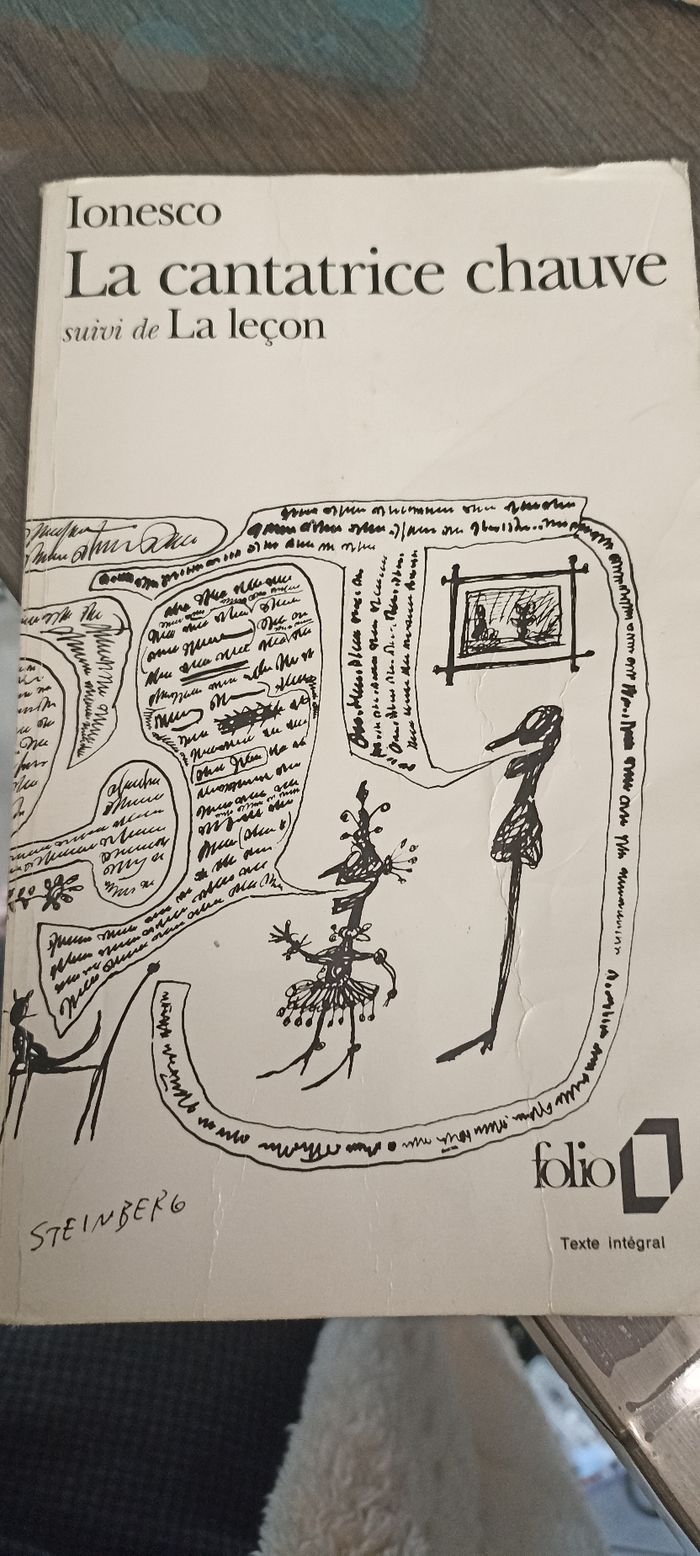 Ionesco
La cantatrice chauve
suivi de La leçon
STEINBERG
folio
Texte intégral